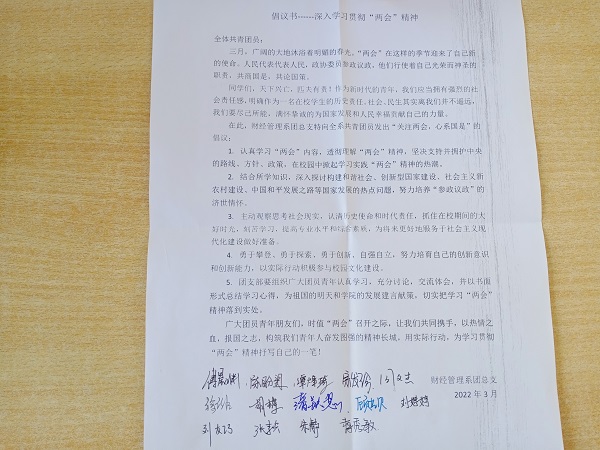 倡议书------深入学习贯彻“两会”精神
全体共青团员：
三月，广阔的大地沐浴着明媚的春光，“两会”在这样的季节迎来了自己新
的使命。人民代表代表人民，政协委员参政议政，他们行使着自己光荣而神圣的
职责，共商国是，共论国策。
同学们，天下兴亡，匹夫有责！作为新时代的青年，我们应当拥有强烈的社
会责任感，明确作为一名在校学生的历史责任。社会、民生其实离我们并不遥远，
我们要尽己所能，满怀挚诚的为国家发展和人民幸福贡献自己的力量。
在此，财经管理系团总支特向全系共青团员发出“关注两会，心系国是”的
倡议：
1．认真学习“两会”内容，透彻理解“两会”精神，坚决支持并拥护中央
的路线、方针、政策，在校园中掀起学习实践“两会”精神的热潮。
2．结合所学知识，深入探讨构建和谐社会、创新型国家建设、社会主义新
农村建设、中国和平发展之路等国家发展的热点问题，努力培养“参政议政”的
济世情怀。
3．主动观察思考社会现实，认清历史使命和时代责任，抓住在校期间的大
好时光，刻苦学习，提高专业水平和综合素质，为将来更好地服务于社会主义现
代化建设做好准备。
4．勇于攀登，勇于探索，勇于创新，自强自立，努力培育自己的创新意识
和创新能力，以实际行动积极参与校园文化建设。
5．团支部要组织广大团员青年认真学习，充分讨论，交流体会，并以书面
形式总结学习心得，为祖国的明天和学院的发展建言献策，切实把学习“两会”
精神落到实处。
广大团员青年朋友们，时值“两会”召开之际，让我们共同携手，以热情之
血，报国之志，构筑我们青年人奋发图强的精神长城。用实际行动，为学习贯彻
“两会”精神抒写自己的一笔！
财经管理系团总支
2022 年 3 月